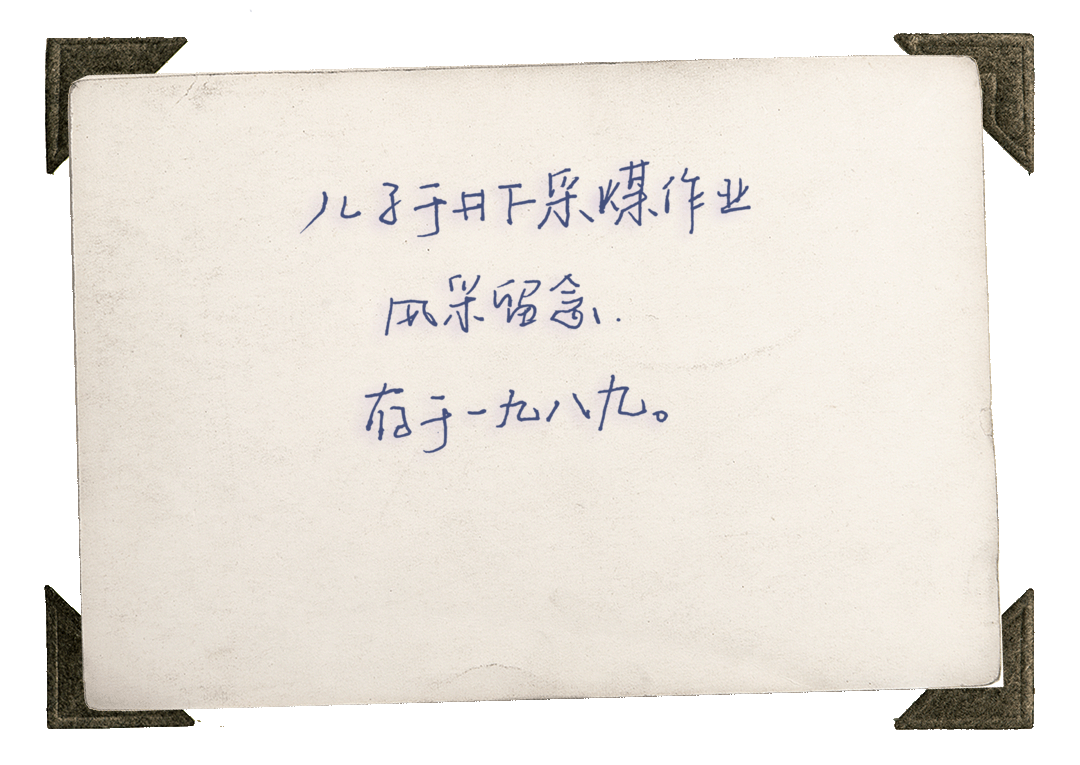 儿子于井下采煤作业
风采留念.
存于一九八九。